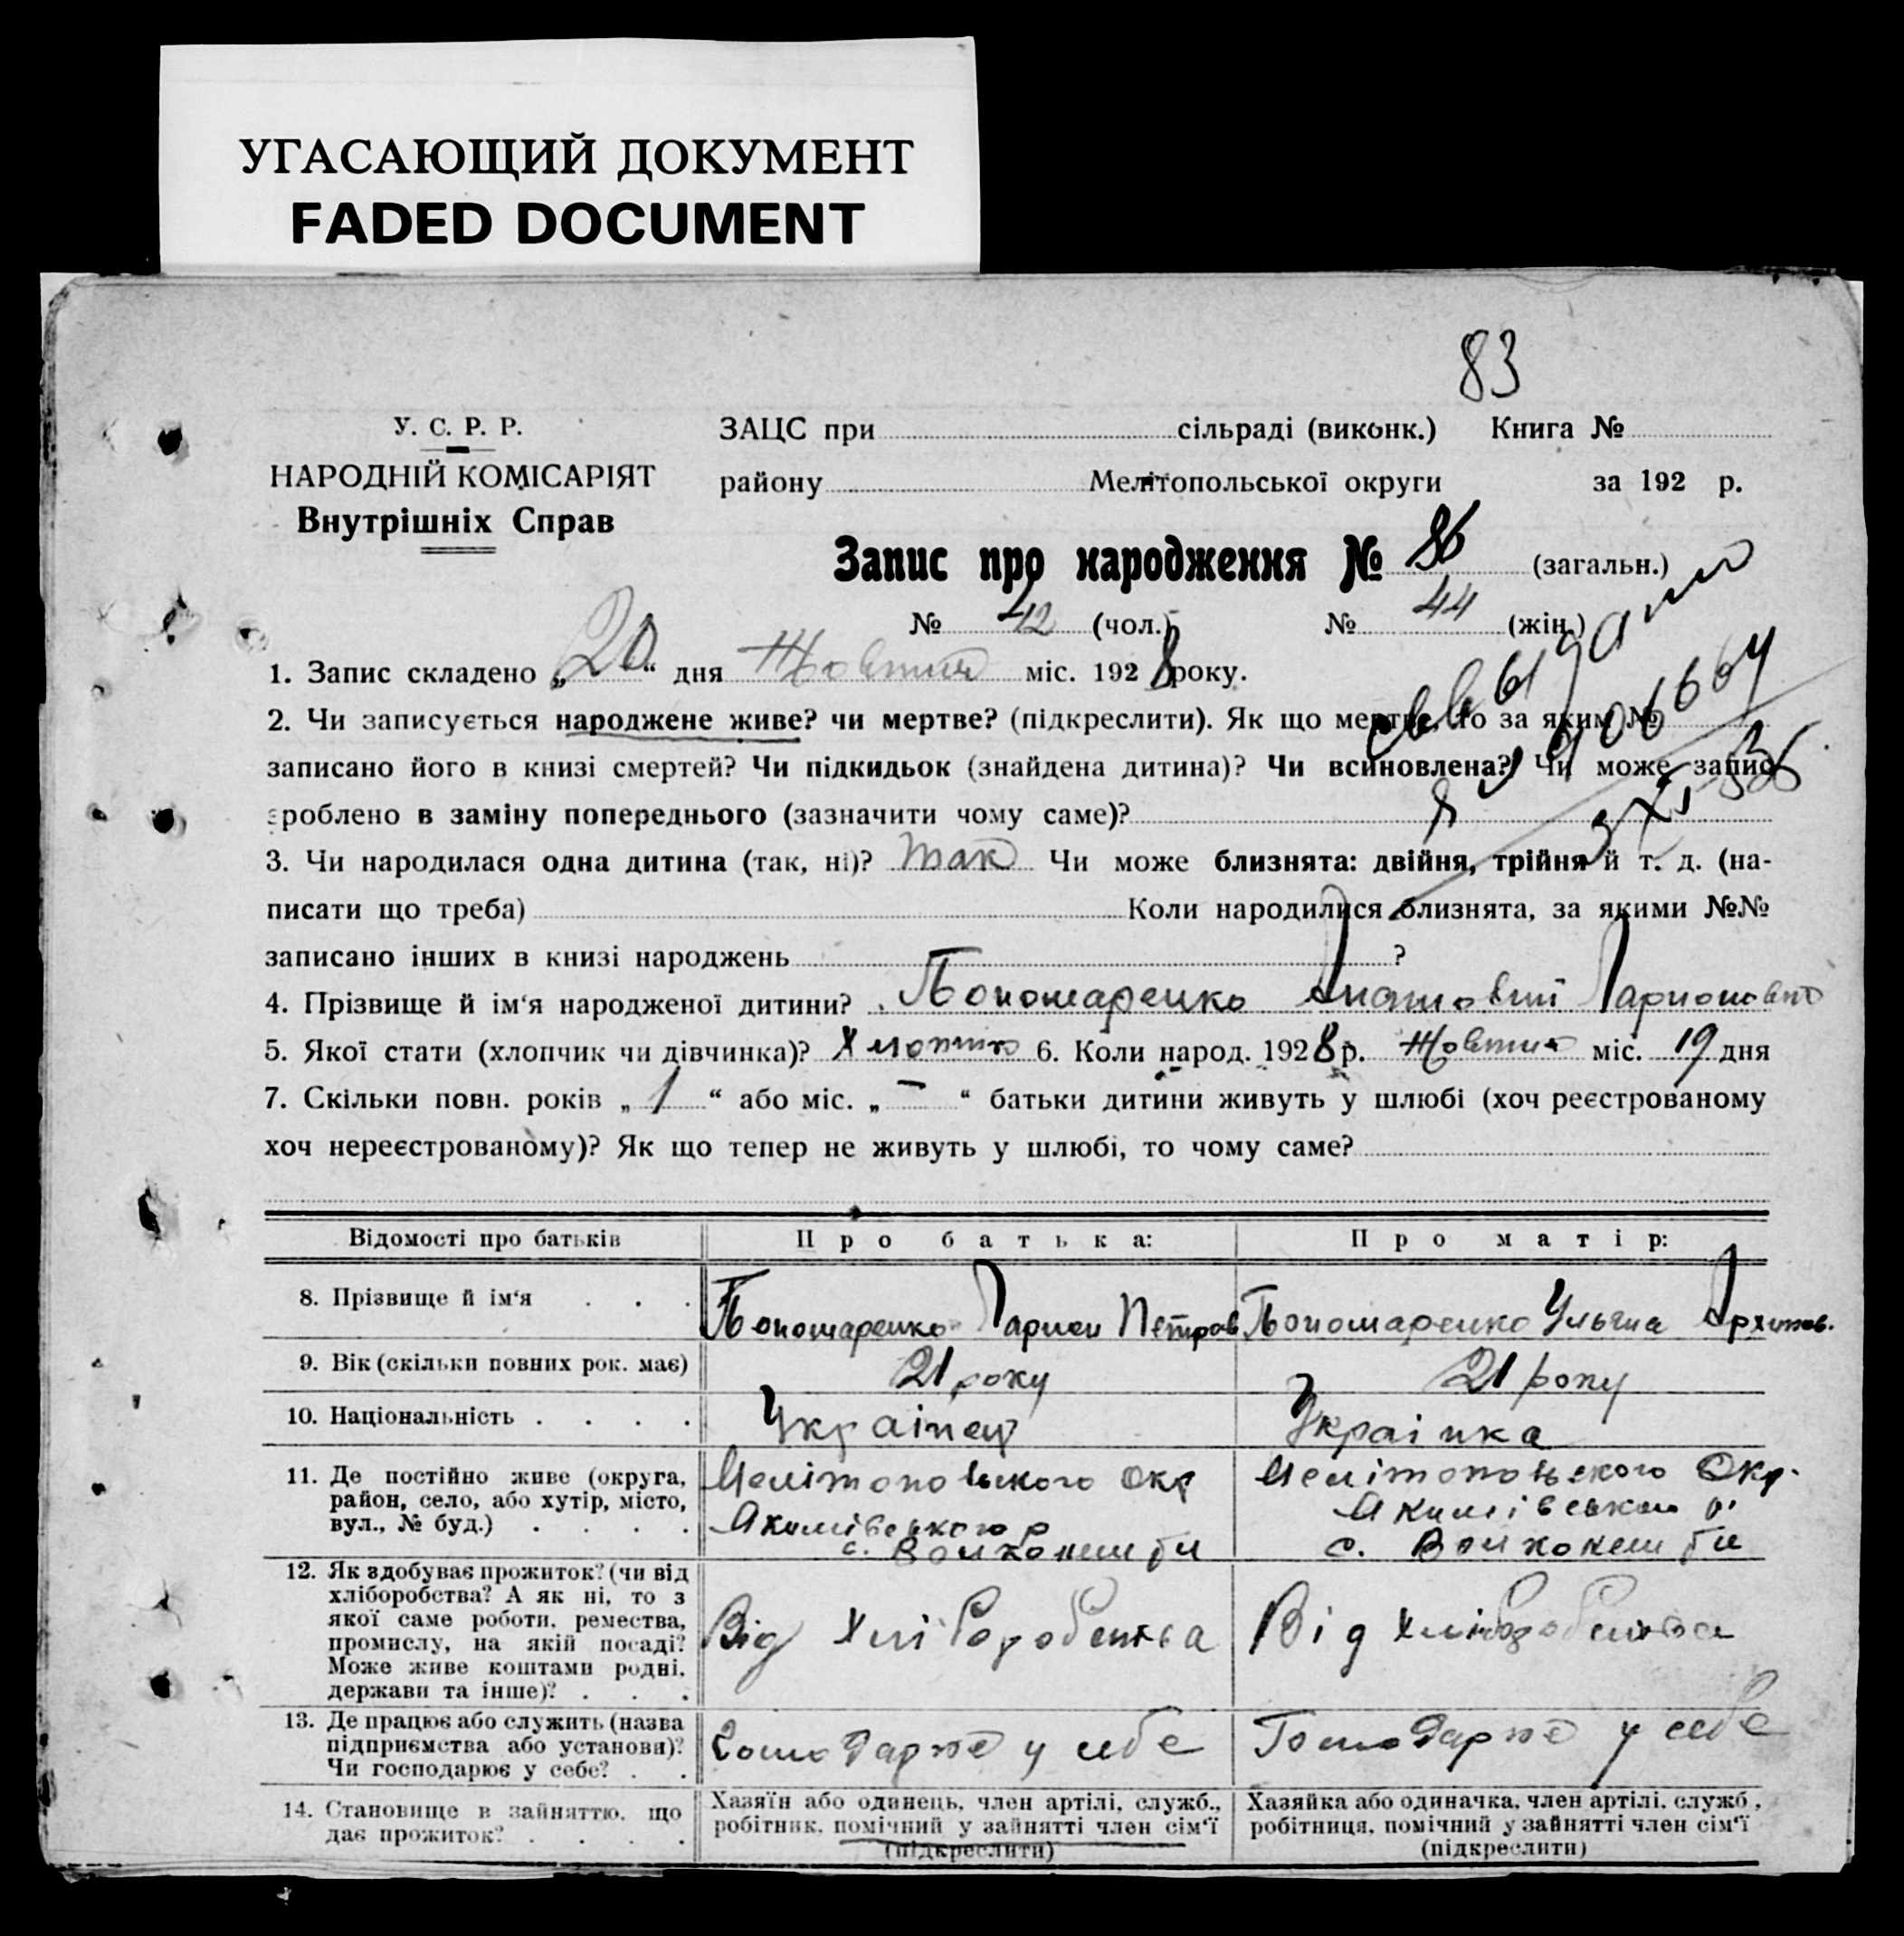 УГАСАЮЩИЙ ДОКУМЕНТ
FADED DOCUMENT
83
У. С. Р. Р.
НАРОДНІЙ КОМІСАРІЯТ
Внутрішніх Справ
ЗАЦС при сільраді (виконк.) Книга №
району Мелітопольської округи за 192 р.
Запис про народження № 86 (загальн.)
№ 42 (чол.) № 44 (жін.)
1. Запис складено „20“ дня Жовтня міс. 1928 року.
2. Чи записується народжене живе? чи мертве? (підкреслити). Як що мертве, то за яким №
записано його в книзі смертей? Чи підкидьок (знайдена дитина)? Чи всиновлена? Чи може запис
зроблено в заміну попереднього (зазначити чому саме)?
3. Чи народилася одна дитина (так, ні)? так Чи може близнята: двійня, трійня й т. д. (на-
писати що треба) Коли народилися близнята, за якими №№
записано інших в книзі народжень ?
4. Прізвище й ім‘я народженої дитини? Пономаренко Анатовий Ларионович
5. Якої стати (хлопчик чи дівчинка)? Хлопчик 6. Коли народ. 1928 р. Жовтня міс. 19 дня
7. Скільки повн. років „1“ або міс. „—“ батьки дитини живуть у шлюбі (хоч реєстрованому
хоч нереєстрованому)? Як що тепер не живуть у шлюбі, то чому саме?
Відомості про батьків Про батька: Про матір:
8. Прізвище й ім‘я . . . Пономаренко Ларион Петров Пономаренко Ульяна Архипов.
9. Вік (скільки повних рок. має) 21 року 21 року
10. Національність . . . . Українец Українка
11. Де постійно живе (округа,
район, село, або хутір, місто,
вул., № буд.) . . . .
Мелітопольского Окр
Якимівського р
с. Волконешти
Мелітопольского Окр.
Якимівського р.
с. Волконешти
12. Як здобуває прожиток? (чи від
хліборобства? А як ні, то з
якої саме роботи, ремества,
промислу, на якій посаді?
Може живе коштами родні,
держави та інше)? . . .
Від Хліборобства Від Хліборобства
13. Де працює або служить (назва
підприємства або установи)?
Чи господарює у себе? . .
Господарює у себе Господарює у себе
14. Становище в зайняттю, що
дає прожиток? . . . .
Хазяїн або одинець, член артілі, служб.,
робітник, помічний у зайнятті член сім‘ї
(підкреслити)
Хазяйка або одиначка, член артілі, служб.,
робітниця, помічний у зайнятті член сім‘ї
(підкреслити)